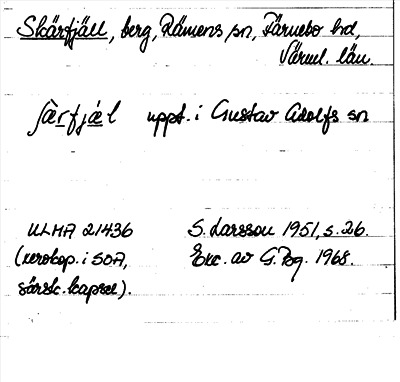 Skärfjäll, berg, Rämens sn, Färnebo hd,
Värml. län.
ʃæ̀rfjæ̀l uppt. i Gustav Adolfs sn
ULMA 21436 S. Larsson 1951, s. 26.
(xerokop. i SOA, Exc. av G. Bg. 1968.
särsk. kapsel).